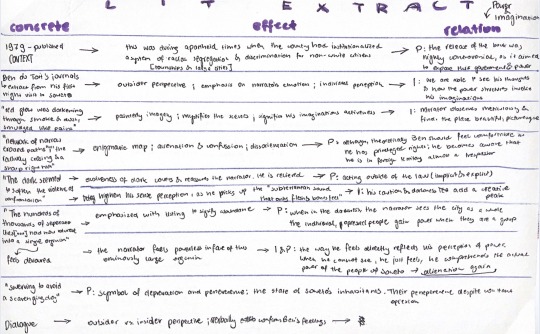 LIT EXTRACT
Power
Imagination
concrete effect relation
1979 - published → this was during apartheid times when the country had institutionalized → P: the release of the book was
CONTEXT a system of racial segregation & discrimination for non-white citizens highly controversial, as it aimed
[townships in large cities] expose this government & power
Ben du Toit's journals → outsider perspective; emphasis on narrators emotion; individual perception → I: we are able to see his thoughts
extract from his first & how the power structures invoke
night visit to Soweto his imaginations
"red glow was darkening → painterly imagery; magnifies the senses; signifies his imaginations activeness → I: narrator observes meticulously &
through smoke & dust, finds the place beautiful, picturesque
smudged like paint"
"network of narrow → enigmatic map; alienation & confusion; disorientation → P: although theoretically Ben should feel comfortable as
eroded paths" & "the he has privileged rights; he becomes aware that
he is in foreign territory almost a trespasser
sharp right turn"
"The dark seemed → evilness of dark covers & reassures the narrator, he is relieved → P: acting outside of the law
to soften the violence of → being heightens his sense perception, as he picks up the "subterranean sound → I: his caution & darkness add a creative
confrontation"
"The hundreds of → emphasized with listing to signify abundance → P: when in the darkness, the narrator sees the city as a whole
thousands of separate the individual, oppressed people gain power when they are a group
had now become
into a single organism"
feels devoured → the narrator feels powerless in face of this → I&P: the way he feels directly reflects his perception of power.
ominously large organism When he cannot see, he just feels, he comprehends the actual
power of the people of Soweto → alienation again
"swerving to avoid → P: symbol of deprivation and perseverance; the state of Soweto's inhabitants. Their perseverance despite
a scavenging dog" oppression
Dialogue → outsider vs insider perspective; verbally confirms Ben's feelings →